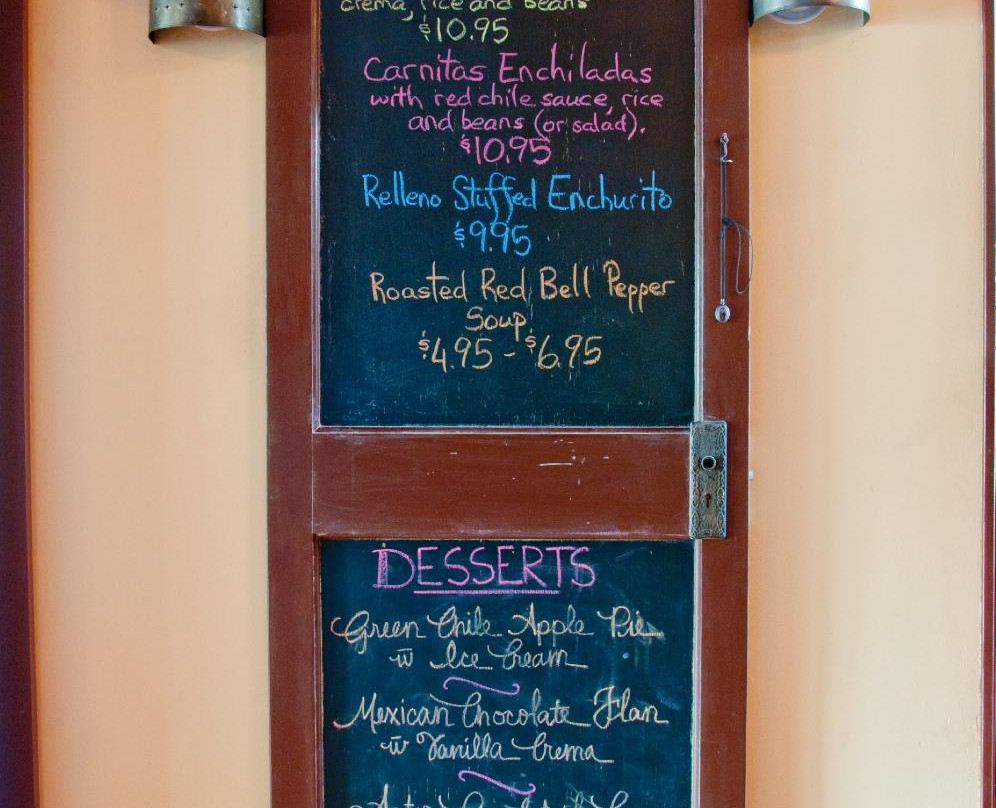 crema, rice and beans
$10.95
Carnitas Enchiladas
with red chile sauce, rice
and beans (or salad).
$10.95
Relleno Stuffed Enchurito
$9.95
Roasted Red Bell Pepper
Soup
$4.95 - $6.95
DESSERTS
Green Chile Apple Pie
w̅ Ice Cream
Mexican Chocolate Flan
w̅ Vanilla Crema